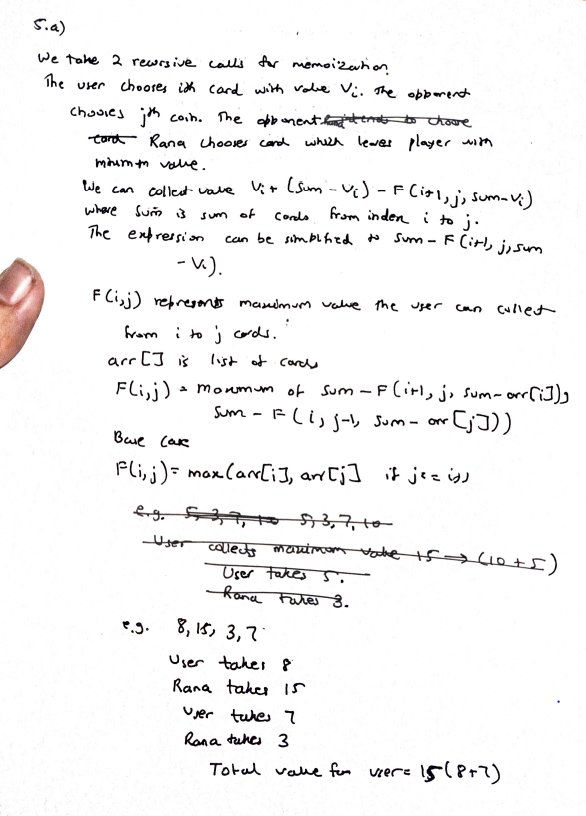 5.a)
We take 2 recursive calls for memoization.
The user chooses ith card with value Vi. The opponent
chooses jth coin. The opponent intends to choose
card Rana chooses card which leaves player with
minimum value.
We can collect value Vi + (Sum - Vi) - F(i+1, j, sum-Vi)
where Sum is sum of cards from index i to j.
The expression can be simplified to Sum - F(i+1, j, sum
- Vi).
F(i,j) represents maximum value the user can collect
from i to j cards.
arr[] is list of cards
F(i,j) = maximum of sum - F(i+1, j, sum - arr[i]),
sum - F(i, j-1, sum - arr[j]))
Base case
F(i,j) = max(arr[i], arr[j] if j == i+1
e.g. 5, 3, 7, 10 5, 3, 7, 10
User collects maximum value 15 → (10+5)
User takes 5.
Rana takes 3.
e.g. 8, 15, 3, 7
User takes 8
Rana takes 15
User takes 7
Rana takes 3
Total value for user = 15 (8+7)